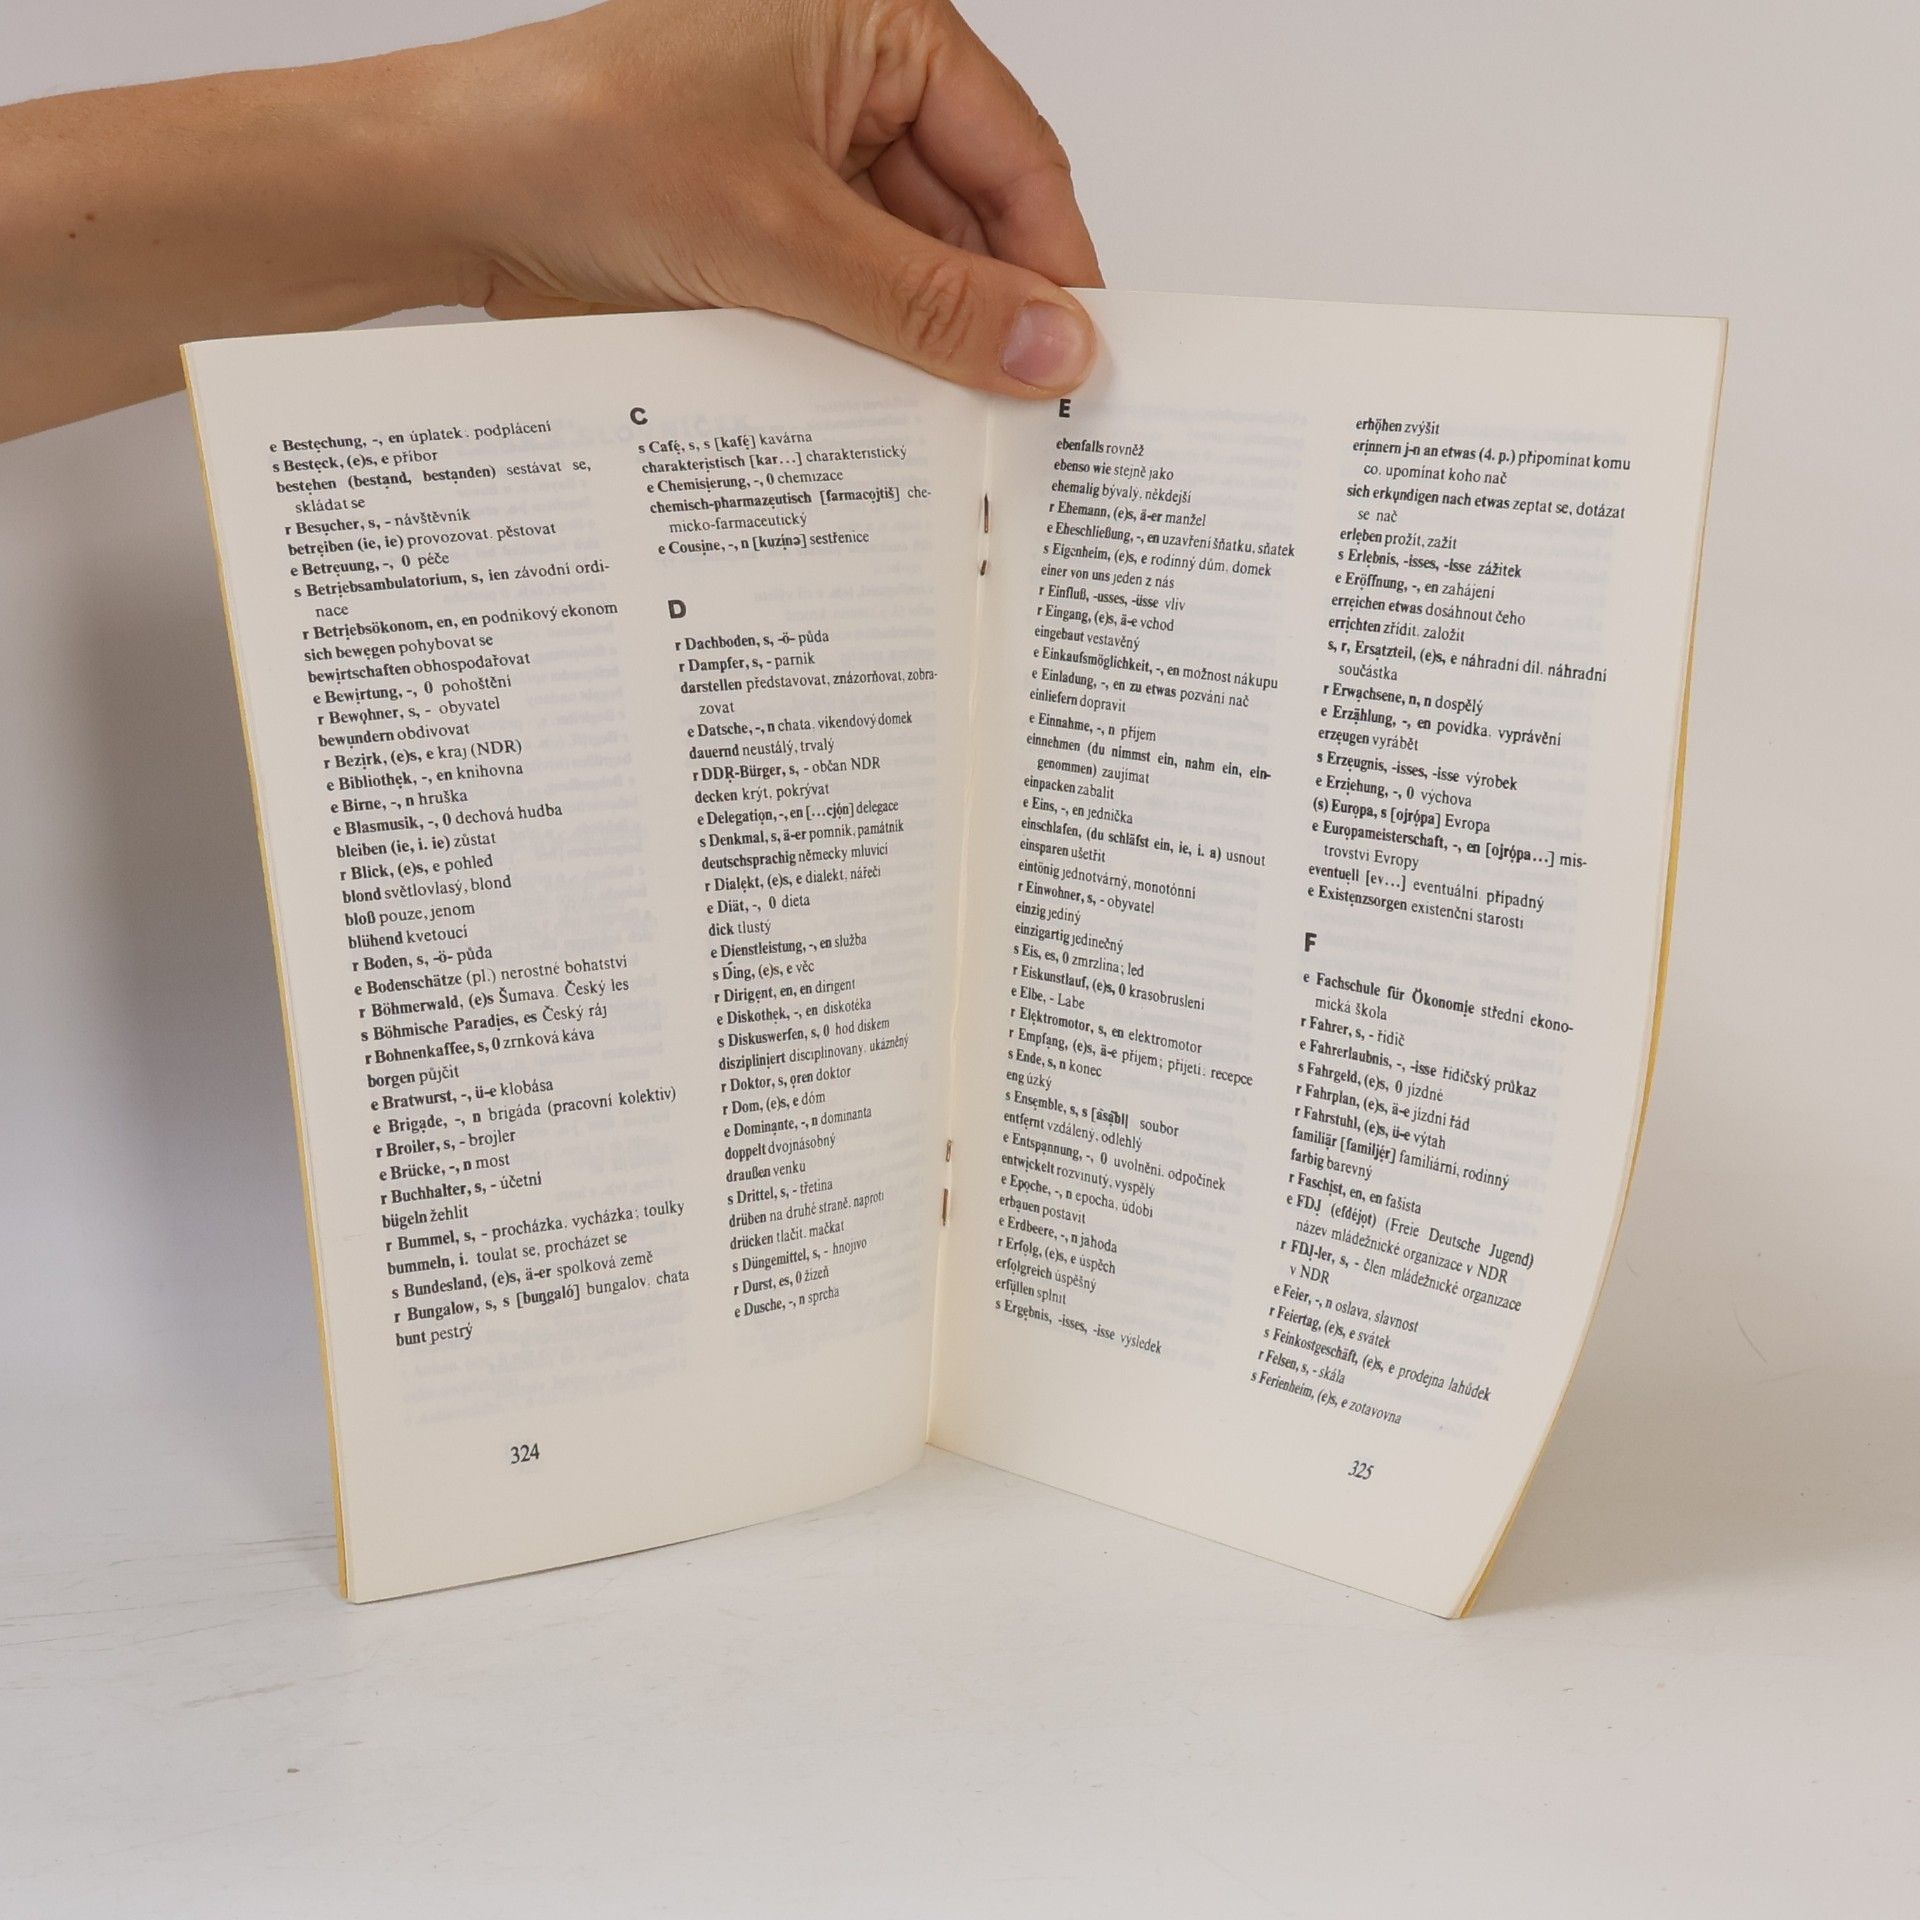 e Bestechung, -, en úplatek, podplácení
s Besteck, (e)s, e příbor
bestehen (bestand, bestanden) sestávat se,
skládat se
r Besucher, s, - návštěvník
betreiben (ie, ie) provozovat, pěstovat
e Betreuung, -, 0 péče
s Betriebsambulatorium, s, ien závodní ordi-
nace
r Betriebsökonom, en, en podnikový ekonom
sich bewegen pohybovat se
bewirtschaften obhospodařovat
e Bewirtung, -, 0 pohoštění
r Bewohner, s, - obyvatel
bewundern obdivovat
r Bezirk, (e)s, e kraj (NDR)
e Bibliothek, -, en knihovna
e Birne, -, n hruška
e Blasmusik, -, 0 dechová hudba
bleiben (ie, i. ie) zůstat
r Blick, (e)s, e pohled
blond světlovlasý, blond
bloß pouze, jenom
blühend kvetoucí
r Boden, s, -ö- půda
e Bodenschätze (pl.) nerostné bohatství
r Böhmerwald, (e)s Šumava, Český les
s Böhmische Paradies, es Český ráj
r Bohnenkaffee, s, 0 zrnková káva
borgen půjčit
e Bratwurst, -, ü-e klobása
e Brigade, -, n brigáda (pracovní kolektiv)
r Broiler, s, - brojler
e Brücke, -, n most
r Buchhalter, s, - účetní
bügeln žehlit
r Bummel, s, - procházka, vycházka; toulky
bummeln, i. toulat se, procházet se
s Bundesland, (e)s, ä-er spolková země
r Bungalow, s, s [bungaló] bungalov, chata
bunt pestrý
C
s Café, s, s [kafé] kavárna
charakteristisch [kar...] charakteristický
e Chemisierung, -, 0 chemizace
chemisch-pharmazeutisch [farmacojtiš] che-
micko-farmaceutický
e Cousine, -, n [kuzínə] sestřenice
D
r Dachboden, s, -ö- půda
r Dampfer, s, - parník
darstellen představovat, znázorňovat, zobra-
zovat
e Datsche, -, n chata, víkendový domek
dauernd neustálý, trvalý
r DDR-Bürger, s, - občan NDR
decken krýt, pokrývat
e Delegation, -, en [...cjón] delegace
s Denkmal, s, ä-er pomník, památník
deutschsprachig německy mluvící
r Dialekt, (e)s, e dialekt, nářečí
e Diät, -, 0 dieta
dick tlustý
e Dienstleistung, -, en služba
s Ding, (e)s, e věc
r Dirigent, en, en dirigent
e Diskothek, -, en diskotéka
s Diskuswerfen, s, 0 hod diskem
diszipliniert disciplinovaný, ukázněný
r Doktor, s, oren doktor
r Dom, (e)s, e dóm
e Dominante, -, n dominanta
doppelt dvojnásobný
draußen venku
s Drittel, s, - třetina
drüben na druhé straně, naproti
drücken tlačit, mačkat
s Düngemittel, s, - hnojivo
r Durst, es, 0 žízeň
e Dusche, -, n sprcha
324
E
ebenfalls rovněž
ebenso wie stejně jako
ehemalig bývalý, někdejší
r Ehemann, (e)s, ä-er manžel
e Eheschließung, -, en uzavření sňatku, sňatek
s Eigenheim, (e)s, e rodinný dům, domek
einer von uns jeden z nás
r Einfluß, -usses, -üsse vliv
r Eingang, (e)s, ä-e vchod
eingebaut vestavěný
e Einkaufsmöglichkeit, -, en možnost nákupu
e Einladung, -, en zu etwas pozvání nač
einliefern dopravit
e Einnahme, -, n příjem
einnehmen (du nimmst ein, nahm ein, ein-
genommen) zaujímat
einpacken zabalit
e Eins, -, en jednička
einschlafen, (du schläfst ein, ie, i. a) usnout
einsparen ušetřit
eintönig jednotvárný, monotónní
r Einwohner, s, - obyvatel
einzig jediný
einzigartig jedinečný
s Eis, es, 0 zmrzlina; led
r Eiskunstlauf, (e)s, 0 krasobruslení
e Elbe, - Labe
r Elektromotor, s, en elektromotor
r Empfang, (e)s, ä-e příjem; přijetí; recepce
s Ende, s, n konec
eng úzký
s Ensemble, s, s soubor
entfernt vzdálený, odlehlý
e Entspannung, -, 0 uvolnění, odpočinek
entwickelt rozvinutý, vyspělý
e Epoche, -, n epocha, údobí
erbauen postavit
e Erdbeere, -, n jahoda
r Erfolg, (e)s, e úspěch
erfolgreich úspěšný
erfüllen splnit
s Ergebnis, -isses, -isse výsledek
erhöhen zvýšit
erinnern j-n an etwas (4. p.) připomínat komu
co, upomínat koho nač
sich erkundigen nach etwas zeptat se, dotázat
se nač
erleben prožít, zažít
s Erlebnis, -isses, -isse zážitek
e Eröffnung, -, en zahájení
erreichen etwas dosáhnout čeho
errichten zřídit, založit
s, r, Ersatzteil, (e)s, e náhradní díl, náhradní
součástka
r Erwachsene, n, n dospělý
e Erzählung, -, en povídka, vyprávění
erzeugen vyrábět
s Erzeugnis, -isses, -isse výrobek
e Erziehung, -, 0 výchova
(s) Europa, s [ojrópa] Evropa
e Europameisterschaft, -, en [ojrópa...] mis-
trovství Evropy
eventuell [ev...] eventuální, případný
e Existenzsorgen existenční starosti
F
e Fachschule für Ökonomie střední ekono-
mická škola
r Fahrer, s, - řidič
e Fahrerlaubnis, -, -isse řidičský průkaz
s Fahrgeld, (e)s, 0 jízdné
r Fahrplan, (e)s, ä-e jízdní řád
r Fahrstuhl, (e)s, ü-e výtah
familiär [familjér] familiární, rodinný
farbig barevný
r Faschist, en, en fašista
e FDJ (efdéjot) (Freie Deutsche Jugend)
název mládežnické organizace v NDR
r FDJ-ler, s, - člen mládežnické organizace
v NDR
e Feier, -, n oslava, slavnost
r Feiertag, (e)s, e svátek
s Feinkostgeschäft, (e)s, e prodejna lahůdek
r Felsen, s, - skála
s Ferienheim, (e)s, e zotavovna
325